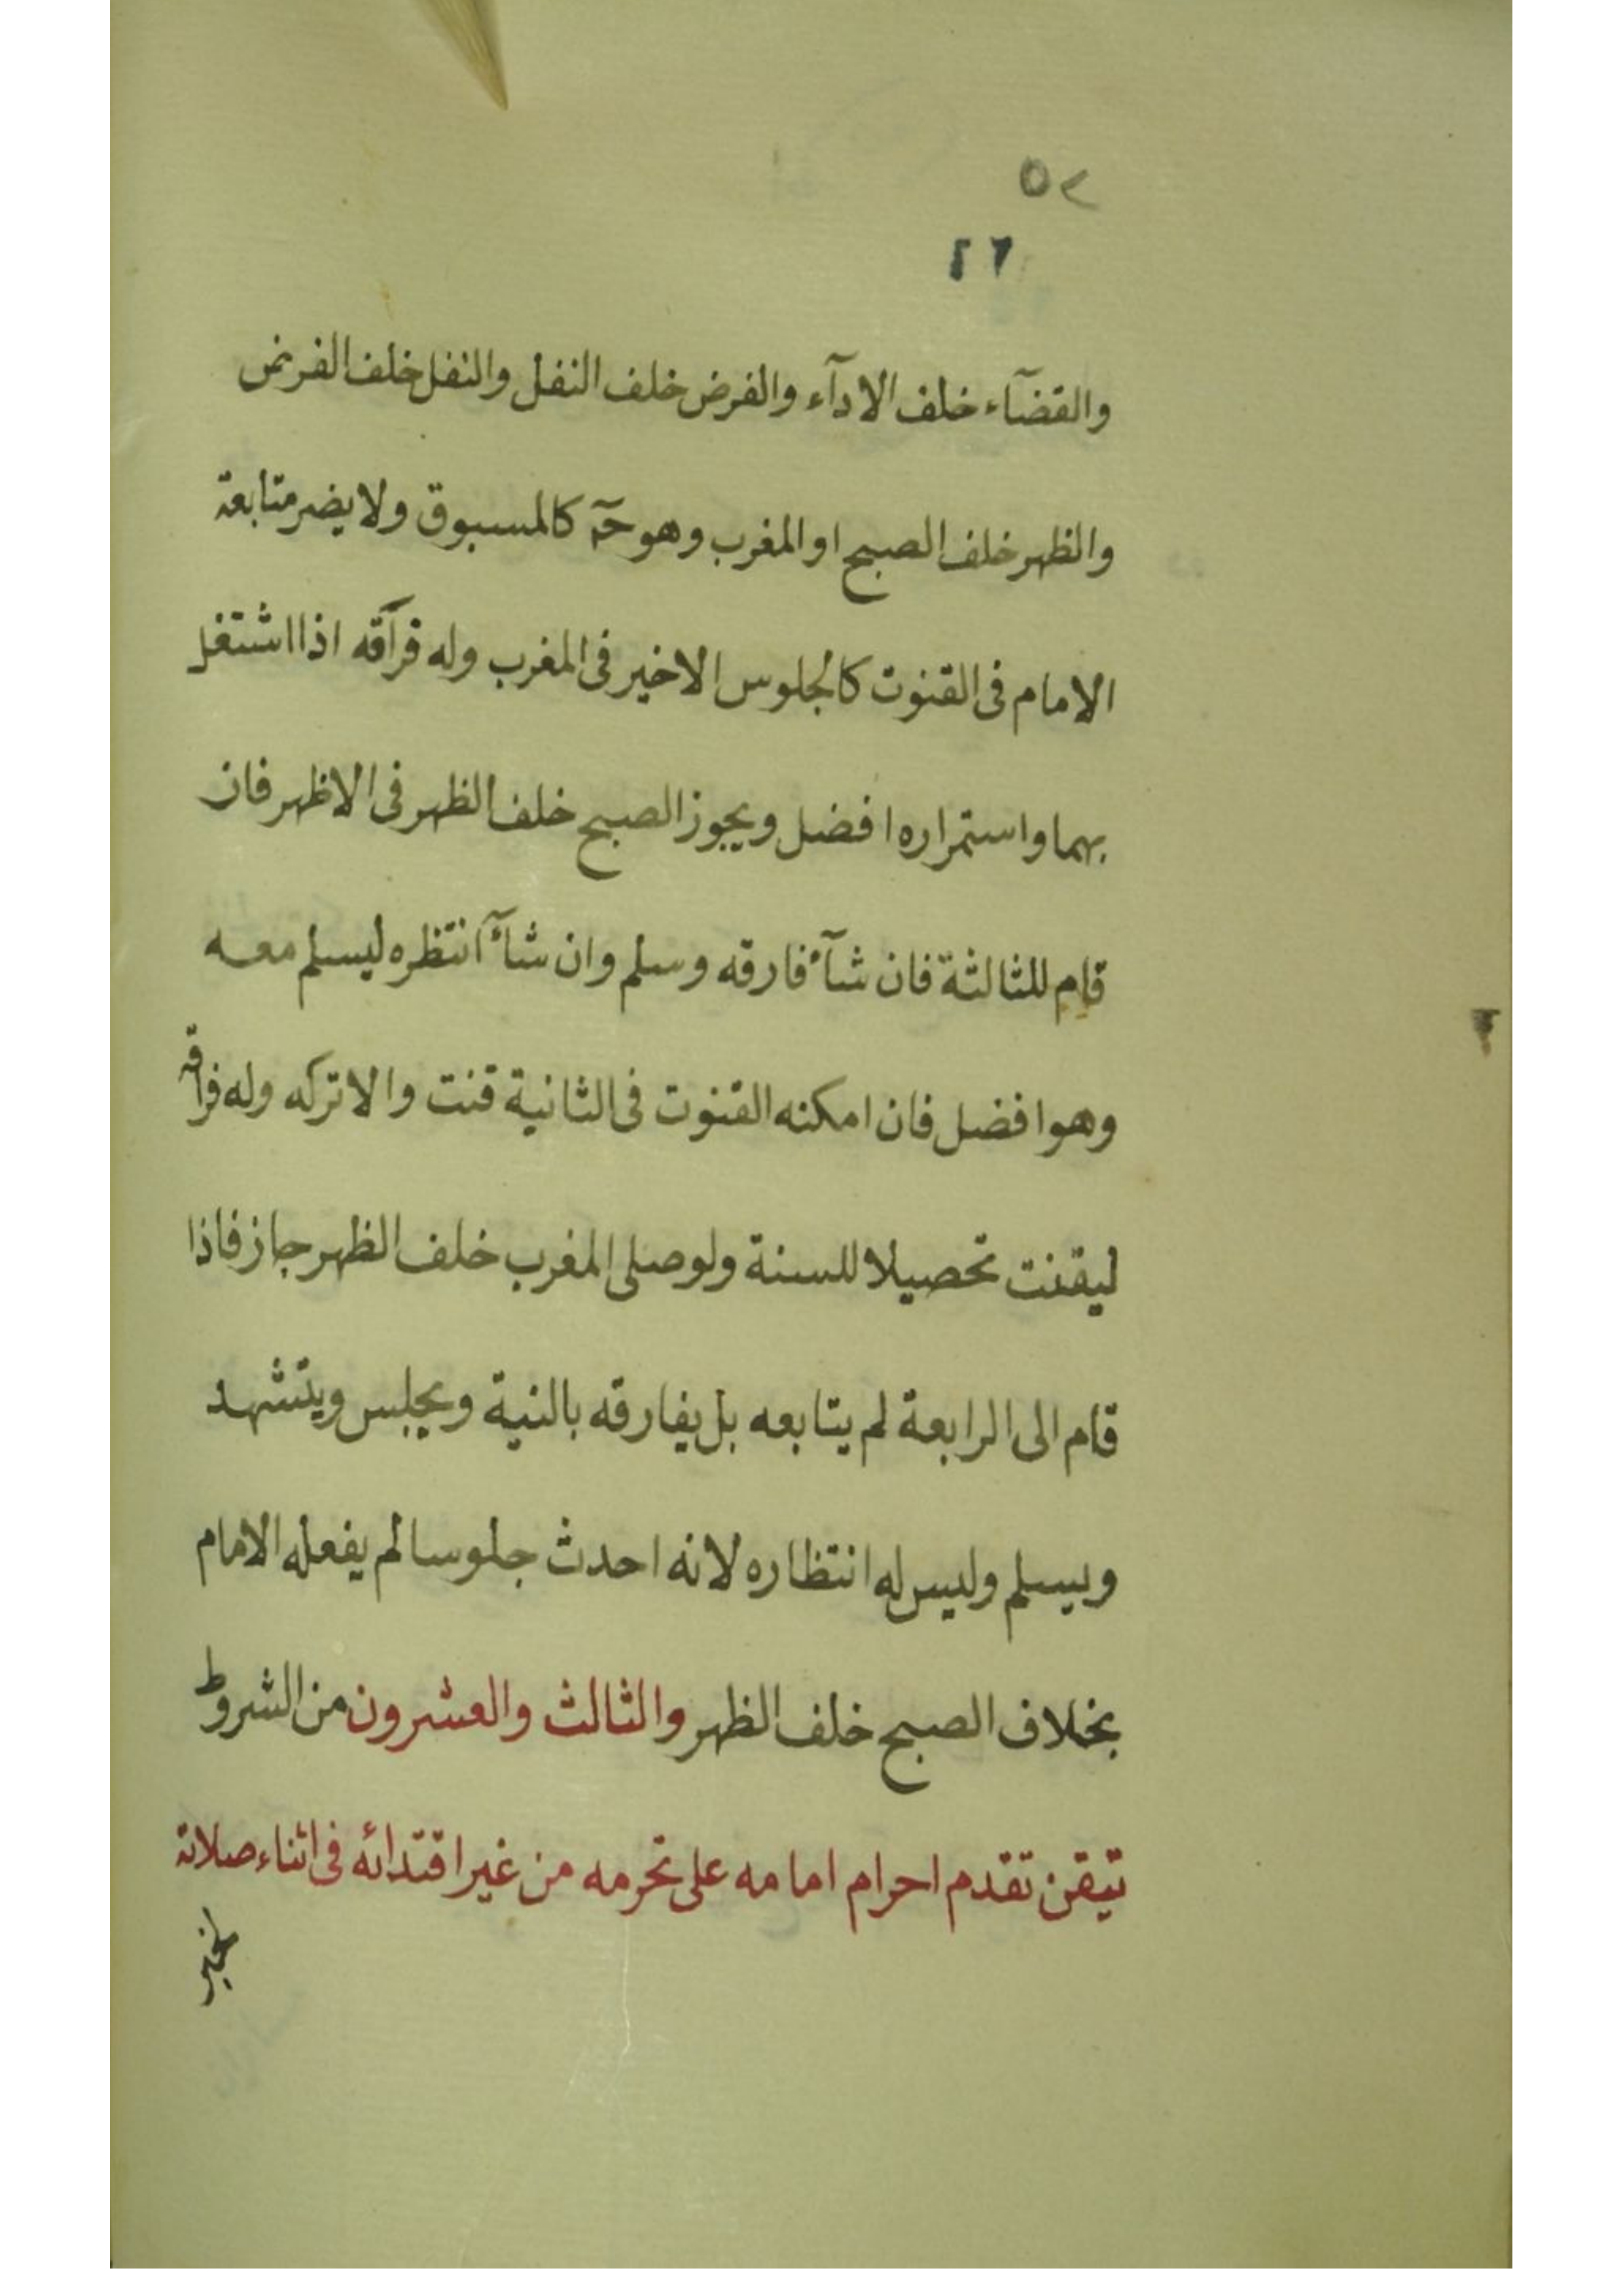 ٥٢
٢٦
والقضآء خلف الادآء والفرض خلف النفل والنفل خلف الفرض
والظهر خلف الصبح او المغرب وهو حٓ كالمسبوق ولا يضر متابعة
الامام فى القنوت كالجلوس الاخير فى المغرب وله فرآقه اذا اشتغل
بهما واستمراره افضل ويجوز الصبح خلف الظهر فى الاظهر فان
قام للثالثة فان شآء فارقه وسلم وان شآء انتظره ليسلم معه
وهو افضل فان امكنه القنوت فى الثانية قنت والا تركه وله فراقه
ليقنت تحصيلا للسنة ولو صلى المغرب خلف الظهر جاز فاذا
قام الى الرابعة لم يتابعه بل يفارقه بالنية ويجلس ويتشهد
ويسلم وليس له انتظاره لانه احدث جلوسا لم يفعله الامام
بخلاف الصبح خلف الظهر والثالث والعشرون من الشروط
تيقن تقدم احرام امامه على تحرمه من غير اقتدائه فى اثناء صلاته